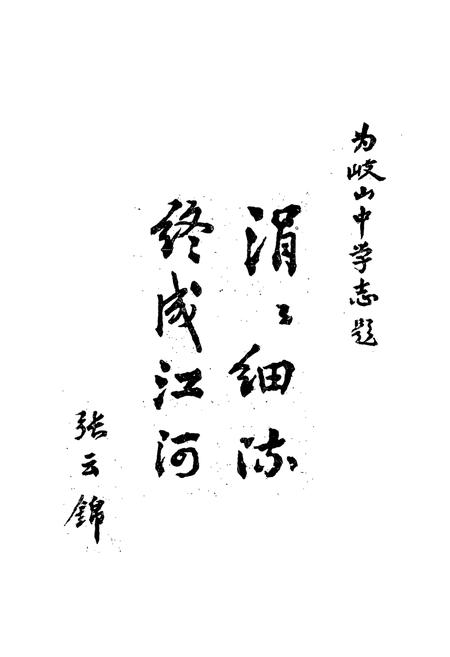 为岐山中学志题
涓々细流
终成江河
张云錦